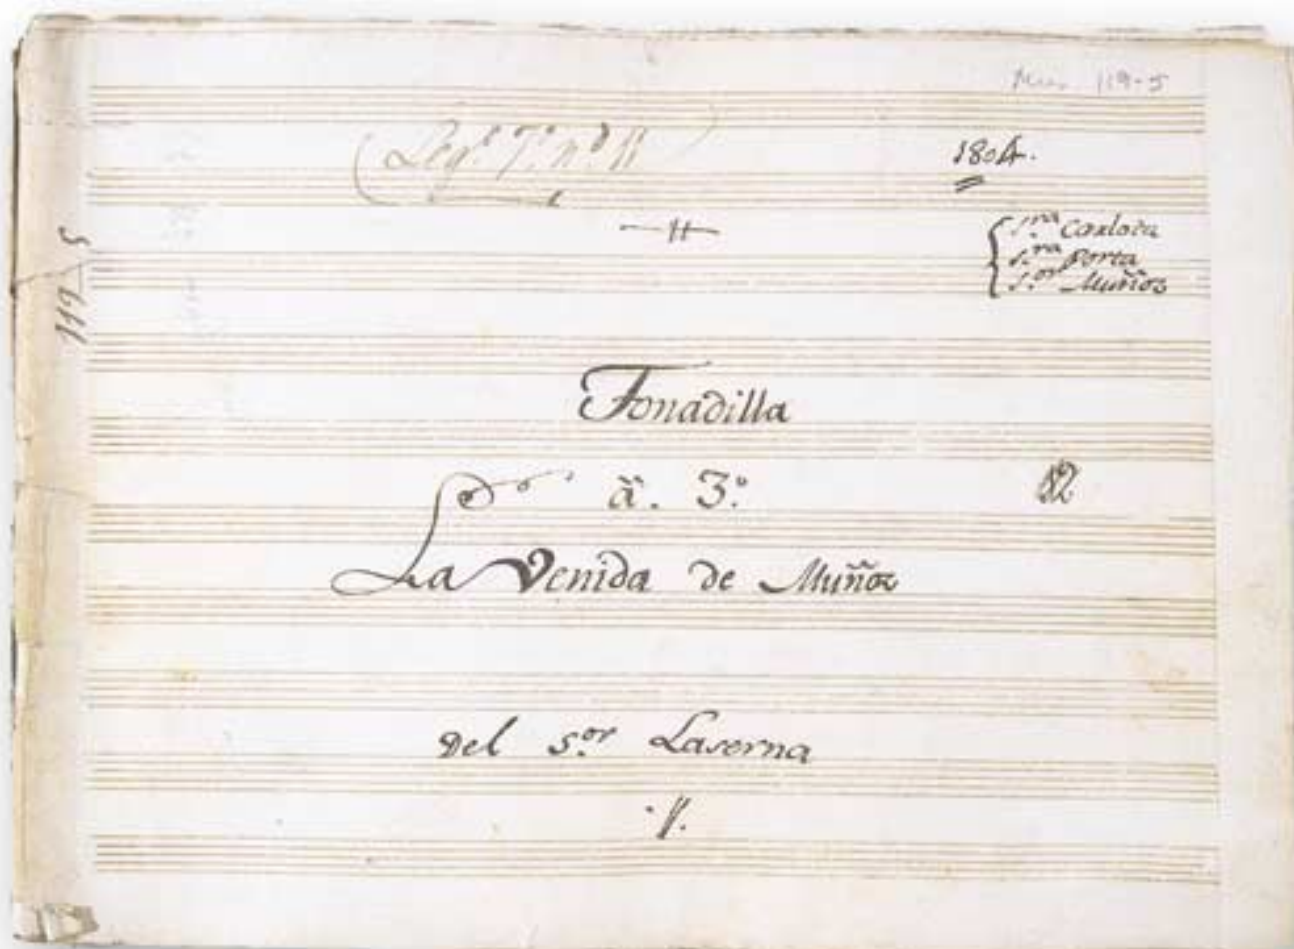 Mus 119-5
(Leg.º 7.º n.º 11)
1804.
119-5
S.ra Carlota
S.ra Porta
S.or Muñoz
Tonadilla
â. 3.º
La Venida de Muñoz
Del S.or Laserna